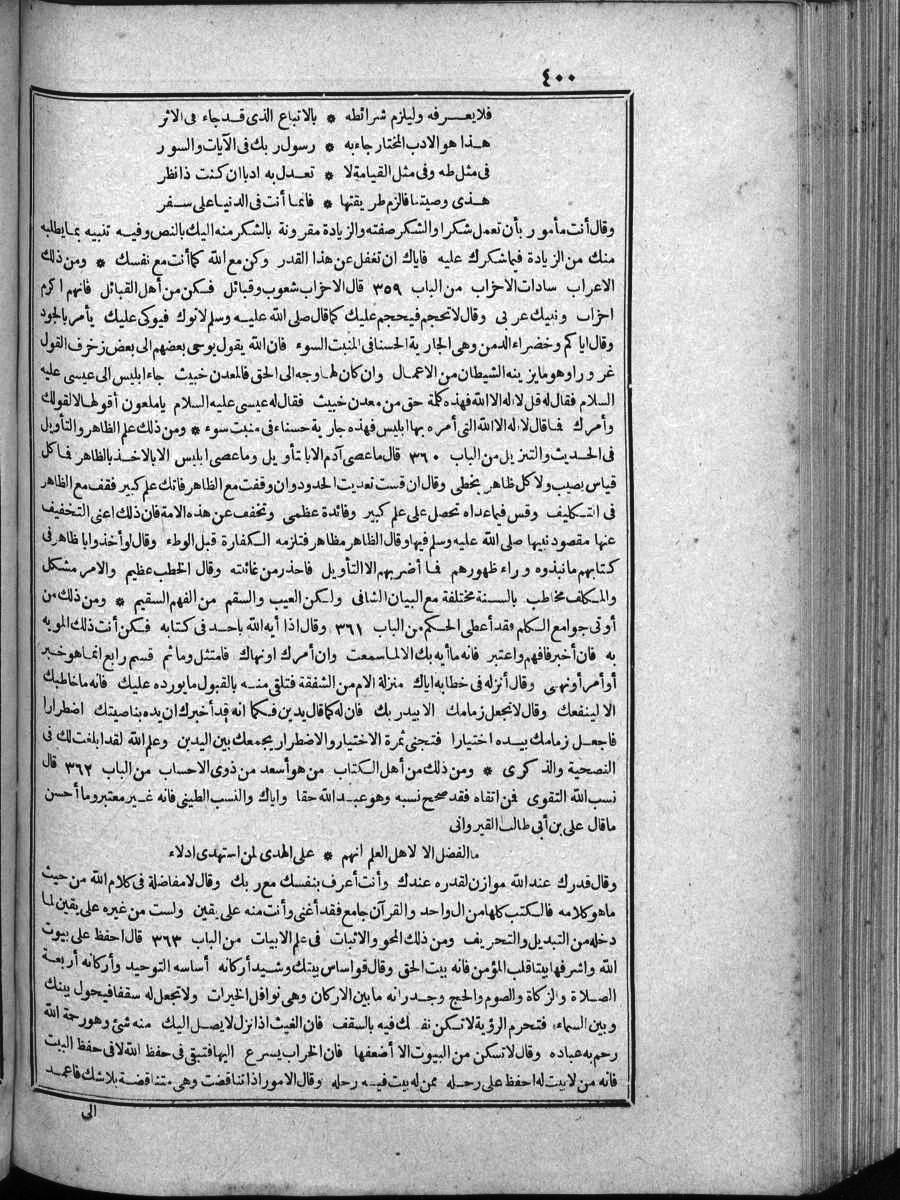 ٤٠٠
فلا يعرفه وليلزم شرائطه * بالاتباع الذى قد جاء فى الاثر
هذا هو الادب المختار جاء به * رسول ربك فى الآيات والسور
فى مثل طه وفى مثل القيامة لا * تعدل به ادبا ان كنت ذا نظر
هذى وصيتنا فالزم طريقتها * فانما أنت فى الدنيا على سفر
وقال أنت مأمور بأن تعمل شكرا والشكر صفته والزيادة مقرونة بالشكر منه اليك بالنص وفيه تنبيه بما يطلبه
منك من الزيادة فيما شكرك عليه فاياك ان تغفل عن هذا القدر وكن مع الله كما أنت مع نفسك * ومن ذلك
الاعراب سادات الاحزاب من الباب ٣٥٩ قال الاحزاب شعوب وقبائل فكن من أهل القبائل فانهم اكرم
احزاب ونبيك عربى وقال لا تحجم فيحجم عليك كما قال صلى الله عليه وسلم لا توك فيوكى عليك يأمر بالجود
وقال اياكم وخضراء الدمن وهى الجارية الحسنا فى المنبت السوء فان الله يقول يوحى بعضهم الى بعض زخرف القول
غرورا وهو ما يزينه الشيطان من الاعمال وان كان لها وجه الى الحق فالمعدن خبيث جاء ابليس الى عيسى عليه
السلام فقال له قل لا اله الا الله فهذه كلمة حق من معدن خبيث فقال له عيسى عليه السلام يا ملعون أقولها لا لقولك
وأمرك فما قال لا اله الا الله التى أمره بها ابليس فهذه جارية حسناء فى منبت سوء * ومن ذلك علم الظاهر والتأويل
فى الحديث والتنزيل من الباب ٣٦٠ قال ما عصى آدم الا بالتأويل وما عصى ابليس الا بالاخذ بالظاهر فما كل
قياس يصيب ولا كل ظاهر يخطى وقال ان قست تعديت الحدود وان وقفت مع الظاهر فاتك علم كبير فقف مع الظاهر
فى التكليف وقس فيما عداه تحصل على علم كبير وفائدة عظمى وتخفف عن هذه الامة فان ذلك اعنى التخفيف
عنها مقصود نبيها صلى الله عليه وسلم فيها وقال الظاهر مظاهر فتلزمه الكفارة قبل الوطء وقال لو أخذوا بما ظاهر فى
كتابهم ما نبذوه وراء ظهورهم فما أضر بهم الا التأويل فاحذر من غائلته وقال الخطب عظيم والامر مشكل
والمكلف مخاطب بالسنة مختلفة مع البيان الشافى ولكن العيب والسقم من الفهم السقيم * ومن ذلك من
أوتى جوامع الكلم فقد أعطى الحكم من الباب ٣٦١ وقال اذا أيه الله باحد فى كتابه فكن أنت ذلك المويه
به فان أخبر فافهم واعتبر فانه ما أيه بك الا لما سمعت وان أمرك او نهاك فامتثل وما ثم قسم رابع انما هو خبر
أو أمر أو نهى وقال أنزله فى خطابه اياك منزلة الام من الشفقة فتلقى منه بالقبول ما يورده عليك فانه ما خاطبك
الا لينفعك وقال لا تجعل زمامك الا بيد ربك فان له كما قال يدين فكما انه قد أخبرك ان يده بناصيتك اضطرارا
فاجعل زمامك بيده اختيارا فتجنى ثمرة الاختيار والاضطرار بجمعك بين اليدين وعلم الله لقد ابلغت لك فى
النصحية والذكرى * ومن ذلك من أهل الكتاب من هو أسعد من ذوى الاحساب من الباب ٣٦٢ قال
نسب الله التقوى فمن اتقاه فقد صحح نسبه وهو عبد الله حقا واياك والنسب الطينى فانه غير معتبر وما أحسن
ما قال على بن أبى طالب القيروانى
ما الفضل الا لاهل العلم انهم * على الهدى لمن استهدى ادلاء
وقال قدرك عند الله موازن لقدره عندك وأنت أعرف بنفسك مع ربك وقال لا مفاضلة فى كلام الله من حيث
ما هو كلامه فالكتب كلها من ال واحد والقرآن جامع فقد أغنى وأنت منه على يقين ولست من غيره على يقين لما
دخله من التبديل والتحريف ومن ذلك المحو والاثبات فى علم الابيات من الباب ٣٦٣ قال احفظ على بيوت
الله واشرفها بيتا قلب المؤمن فانه بيت الحق وقال قو اساس بيتك وشيد أركانه أساسه التوحيد وأركانه أربعة
الصلاة والزكاة والصوم والحج وجدرانه ما بين الاركان وهى نوافل الخيرات ولا تجعل له سقفا فيحول بينك
وبين السماء فتحرم الرؤية لا تكن نفسك فيه بالسقف فان الغيث اذا نزل لا يصل اليك منه شئ وهو رحمة الله
رحم به عباده وقال لا تسكن من البيوت الا أضعفها فان الخراب يسرع اليها فتبقى فى حفظ الله لا فى حفظ البيت
فانه من لا بيت له احفظ على رحله ممن له بيت فيه رحله وقال الامور اذا تناقضت وهى متناقضة بلا شك فاعمد
الى